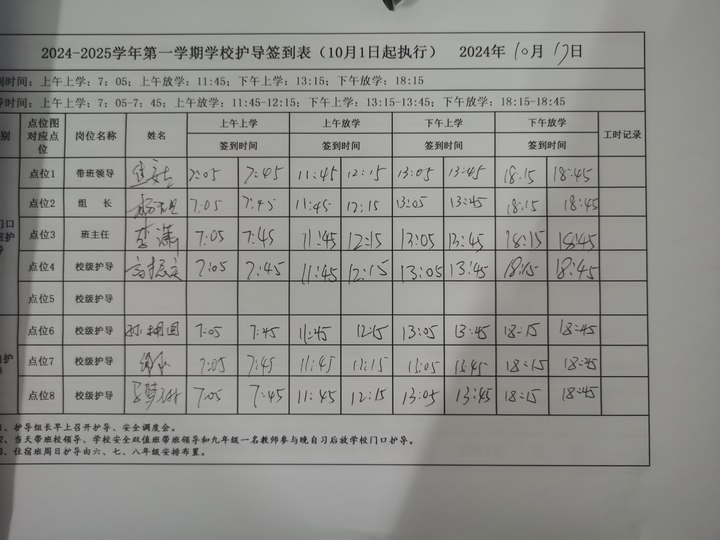 2024-2025学年第一学期学校护导签到表（10月1日起执行） 2024年 10月 17日
到时间：上午上学：7：05；上午放学：11:45；下午上学：13:15；下午放学：18:15
导时间：上午上学：7：05-7：45；上午放学：11:45-12:15；下午上学：13:15-13:45；下午放学：18:15-18:45
别 点位图对应点位 岗位名称 姓名 上午上学 上午放学 下午上学 下午放学 工时记录
签到时间 签到时间 签到时间 签到时间
点位1 带班领导 7:05 7:45 11:45 12:15 13:05 13:45 18:15 18:45
点位2 组 长 7:05 7:45 11:45 12:15 13:05 13:45 18:15 18:45
门口 点位3 班主任 李潇 7:05 7:45 11:45 12:15 13:05 13:45 18:15 18:45
点位4 校级护导 7:05 7:45 11:45 12:15 13:05 13:45 18:15 18:45
点位5 校级护导
点位6 校级护导 7:05 7:45 11:45 12:15 13:05 13:45 18:15 18:45
点位7 校级护导 7:05 7:45 11:45 12:15 13:05 13:45 18:15 18:45
点位8 校级护导 7:05 7:45 11:45 12:15 13:05 13:45 18:15 18:45
1、护导组长早上召开护导、安全调度会。
2、当天带班校领导、学校安全双值班带班领导和九年级一名教师参与晚自习后放学校门口护导。
3、住宿班周日护导由六、七、八年级安排布置。